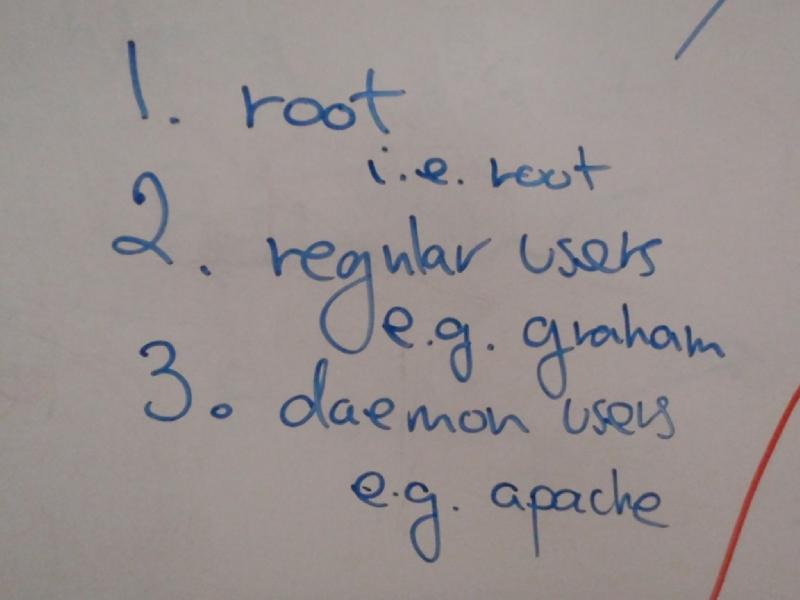 1. root
i.e. root
2. regular users
e.g. graham
3. daemon users
e.g. apache